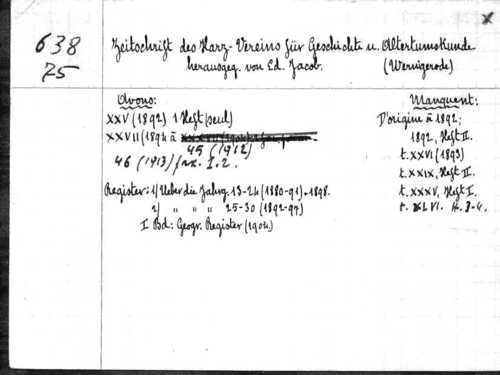 x
638
75
Zeitschrift des Harz-Vereins für Geschichte u. Altertumskunde
herausgeg. von Ed. Jacob. (Wernigerode)
Avons:
XXV (1892) 1 Heft (seul)
XXVII (1894 à
45 (1912)
46 (1913) fasc. I. 2.
Register: 1) Ueber die Jahrg. 13-24 (1880-91). 1898.
2) " " " 25-30 (1892-97)
I Bd: Geogr. Register (1904)
Manquent:
D'origine à 1892;
1892, Heft II.
t. XXVI (1893)
t. XXIX, Heft II.
t. XXXV, Heft I.
t. XLVI. H. 3-4.